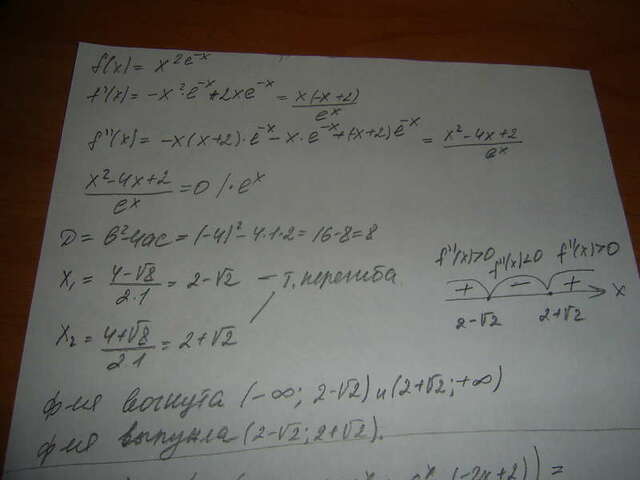 f(x) = x²e⁻ˣ
f'(x) = -x²·e⁻ˣ+2xe⁻ˣ = x(-x+2)/eˣ
f''(x) = -x(x+2)·e⁻ˣ - x·e⁻ˣ+(x+2)e⁻ˣ = x²-4x+2/eˣ
x²-4x+2/eˣ = 0 /·eˣ
D = b²-4ac = (-4)²-4·1·2 = 16-8 = 8
x₁ = 4-√8/2·1 = 2-√2 — т. перегиба
x₂ = 4+√8/2·1 = 2+√2
f''(x)>0 f''(x)<0 f''(x)>0
+ - + x
2-√2 2+√2
ф-ия вогнута (-∞; 2-√2) и (2+√2; +∞)
ф-ия выпукла (2-√2; 2+√2).
(-2x+2)) =